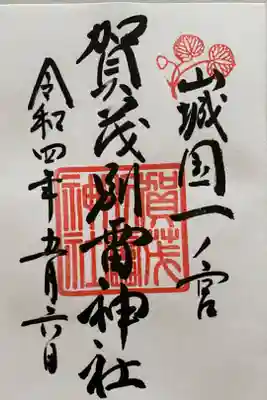 山城国一ノ宮
賀茂別雷神社
令和四年五月六日
賀茂別雷神社